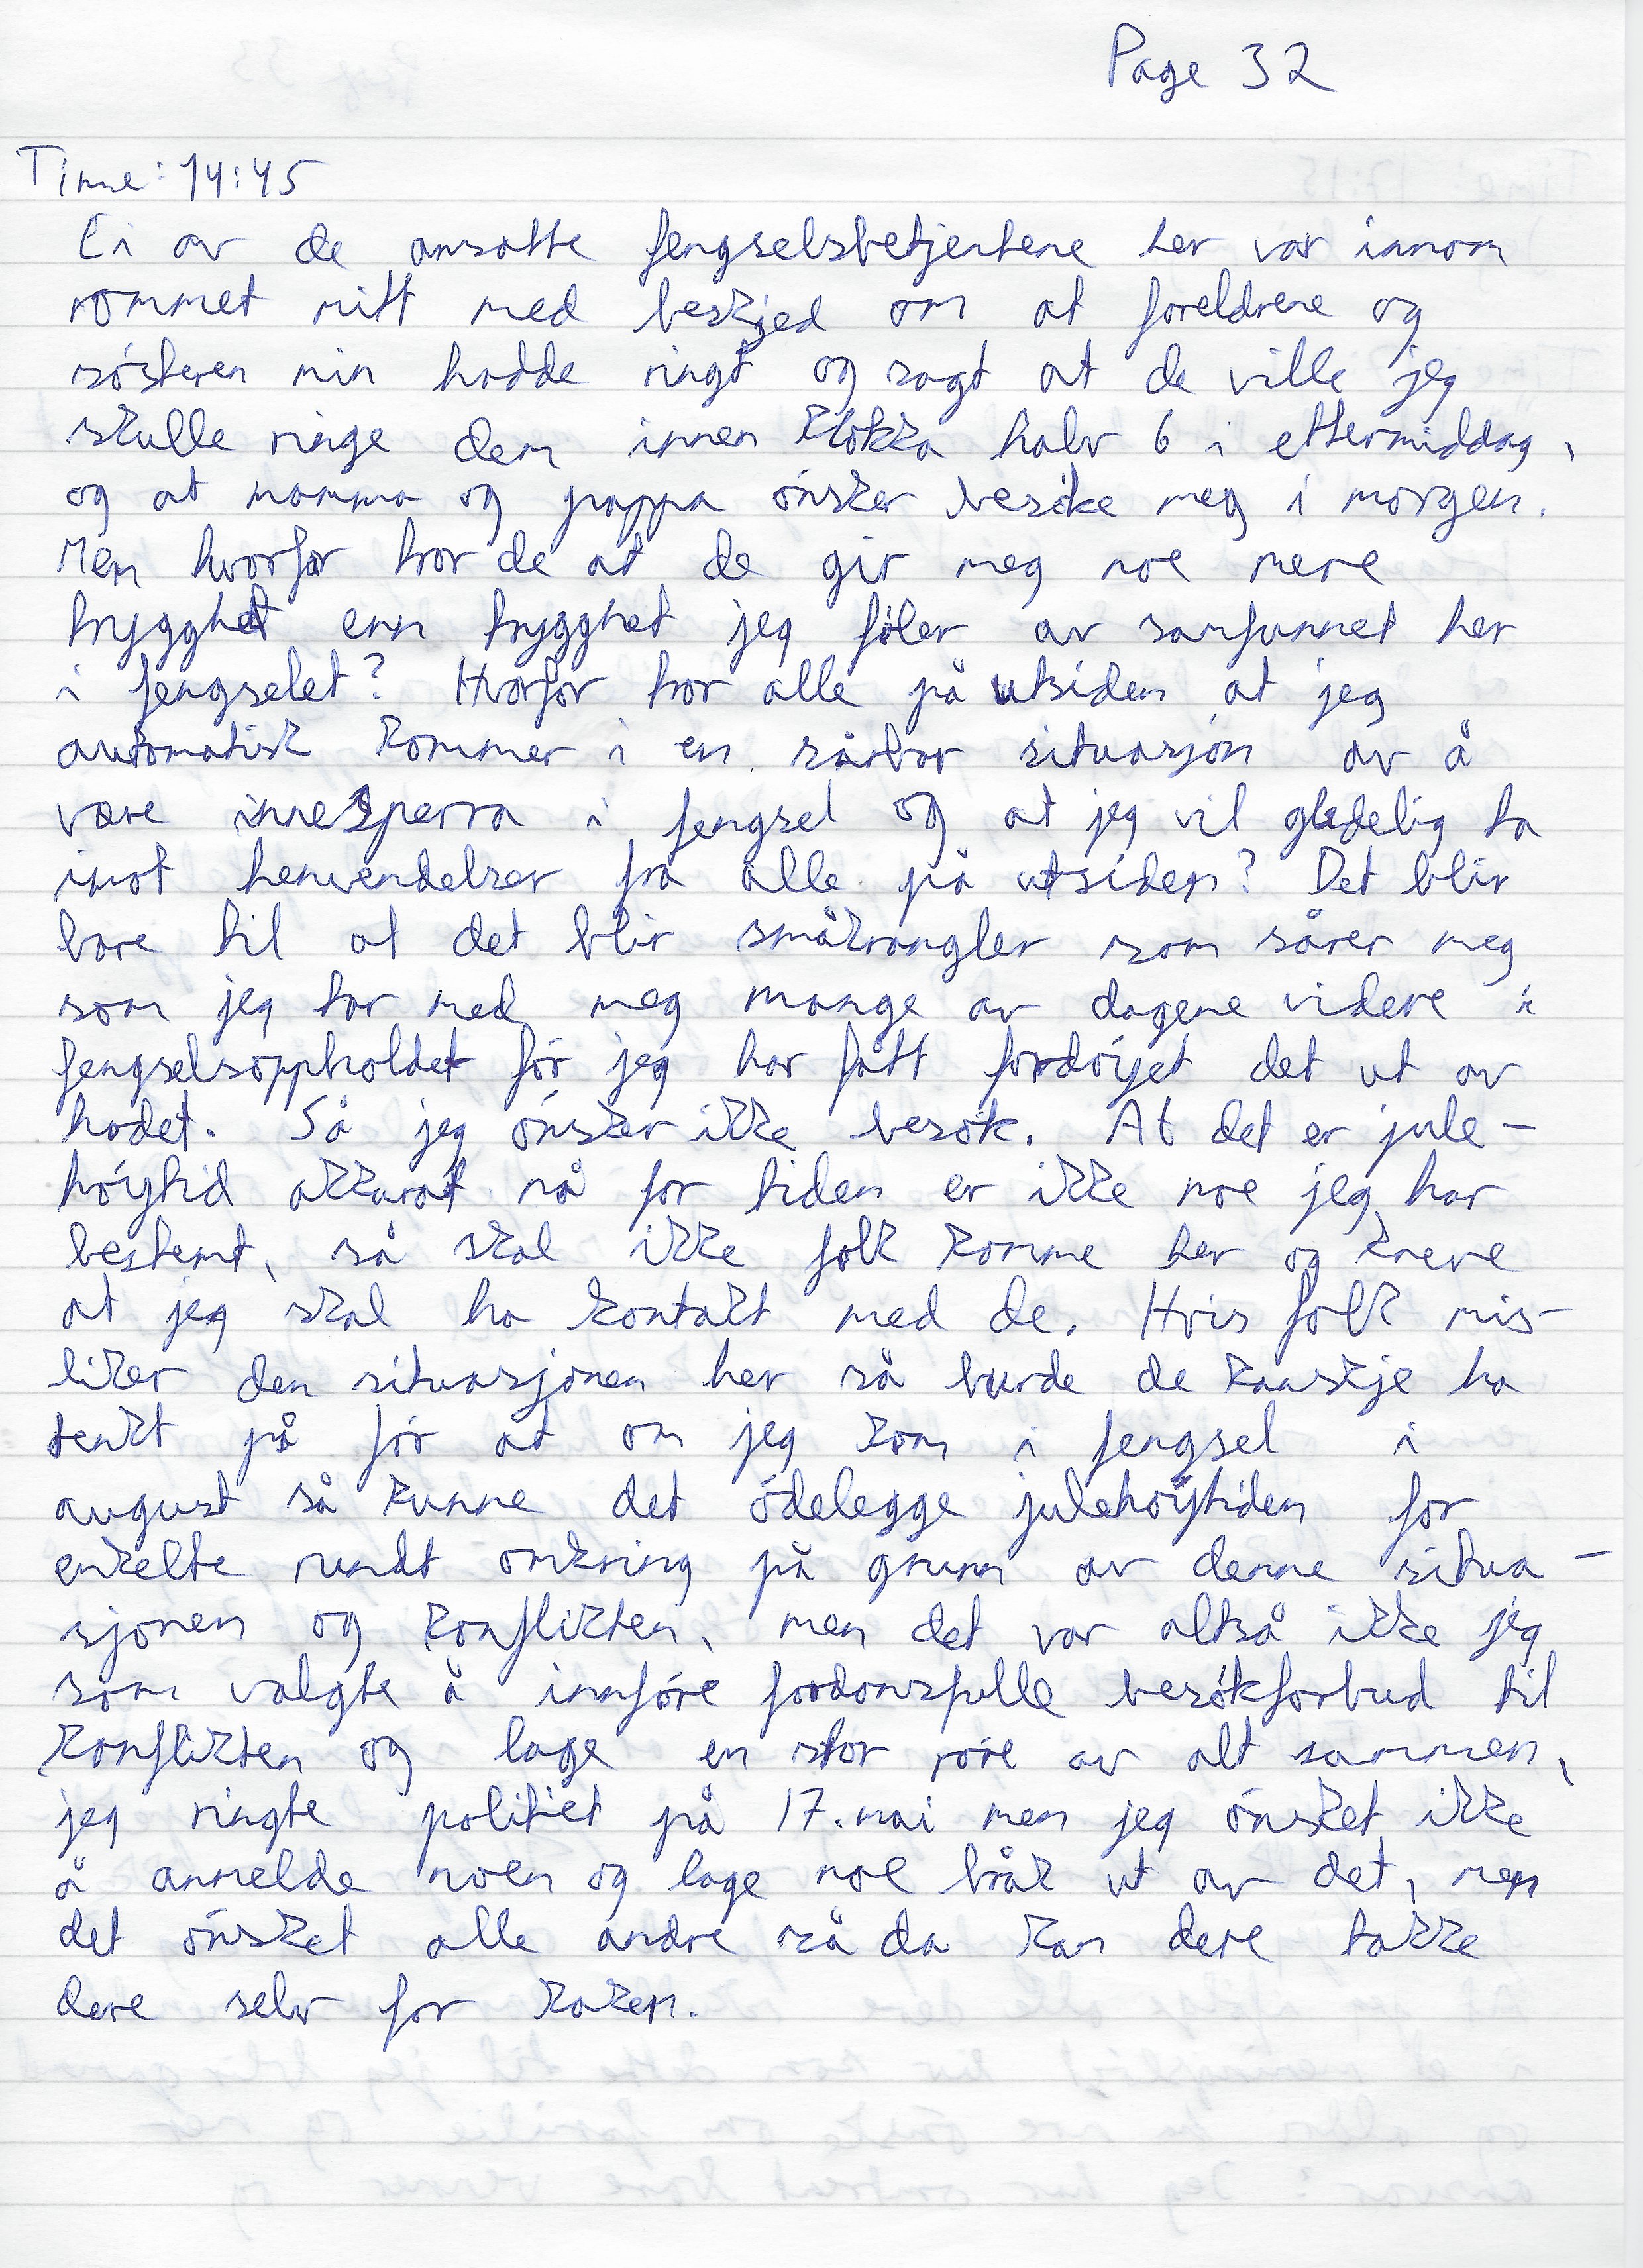 Page 32
Time: 14:45
Ei av de ansatte fengselsbetjentene her var innom
rommet mitt med beskjed om at foreldrene og
søsteren min hadde ringt og sagt at de ville jeg
skulle ringe dem innen klokka halv 6 i ettermiddag,
og at mamma og pappa ønsker besøke meg i morgen.
Men hvorfor tror de at de gir meg noe mere
trygghet enn trygghet jeg føler av samfunnet her
i fengselet? Hvorfor tror alle på utsiden at jeg
automatisk kommer i en sårbar situasjon av å
være innesperra i fengsel og at jeg vil gledelig ta
imot henvendelser fra alle på utsiden? Det blir
bare til at det blir småkrangler som sårer meg
som jeg tar med meg mange av dagene videre i
fengselsoppholdet før jeg har fått fordøyet det ut av
hodet. Så jeg ønsker ikke besøk. At det er jule-
høytid akkurat nå for tiden er ikke noe jeg har
bestemt, så skal ikke folk komme her og kreve
at jeg skal ha kontakt med de. Hvis folk mis-
liker den situasjonen her så burde de kanskje ha
tenkt på før at om jeg kom i fengsel i
august så kunne det ødelegge julehøytiden for
enkelte rundt omkring på grunn av denne situa-
sjonen og konflikten, men det var altså ikke jeg
som valgte å innføre fordomsfulle besøkforbud til
konflikten og lage en stor røre av alt sammen,
jeg ringte politiet på 17. mai men jeg ønsket ikke
å anmelde noen og lage noe bråk ut av det, men
det ønsket alle andre så da kan dere takke
dere selv for kaken.